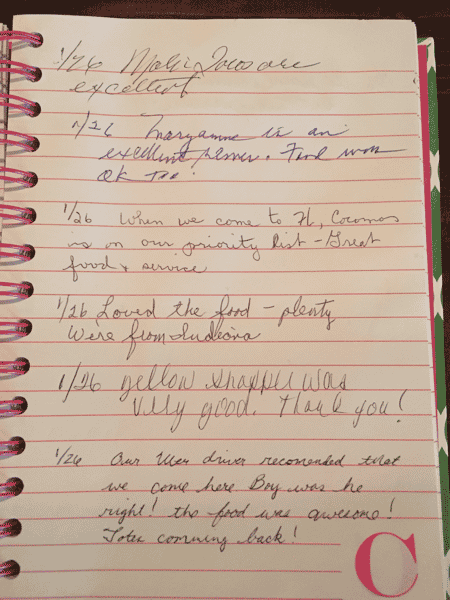 1/26 Mahi Tacos are
excellent
1/26 Maryanne is an
excellent server. Food was
OK too!
1/26 When we come to FL, Cocomos
is on our priority list - Great
food & service
1/26 Loved the food - plenty
We're from Indiana
1/26 yellow snapper was
very good. Thank you!
1/26 Our Uber driver recomended that
we come here Boy was he
right! the food was awesome!
comming back!
C